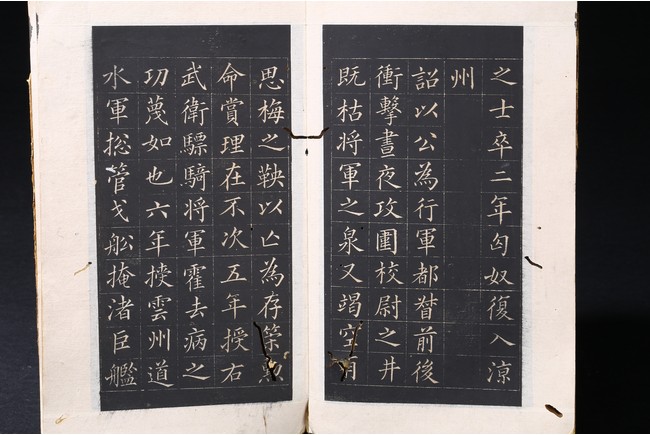 之士卒二年匈奴復入涼
州
詔以公為行軍都督前後
衝擊晝夜攻圍校尉之井
既枯将軍之泉又竭空有
思梅之鞅以亡為存策勲
命賞理在不次五年授右
武衛驃騎将軍霍去病之
功蔑如也六年授雲州道
水軍捴管戈舩掩渚巨艦